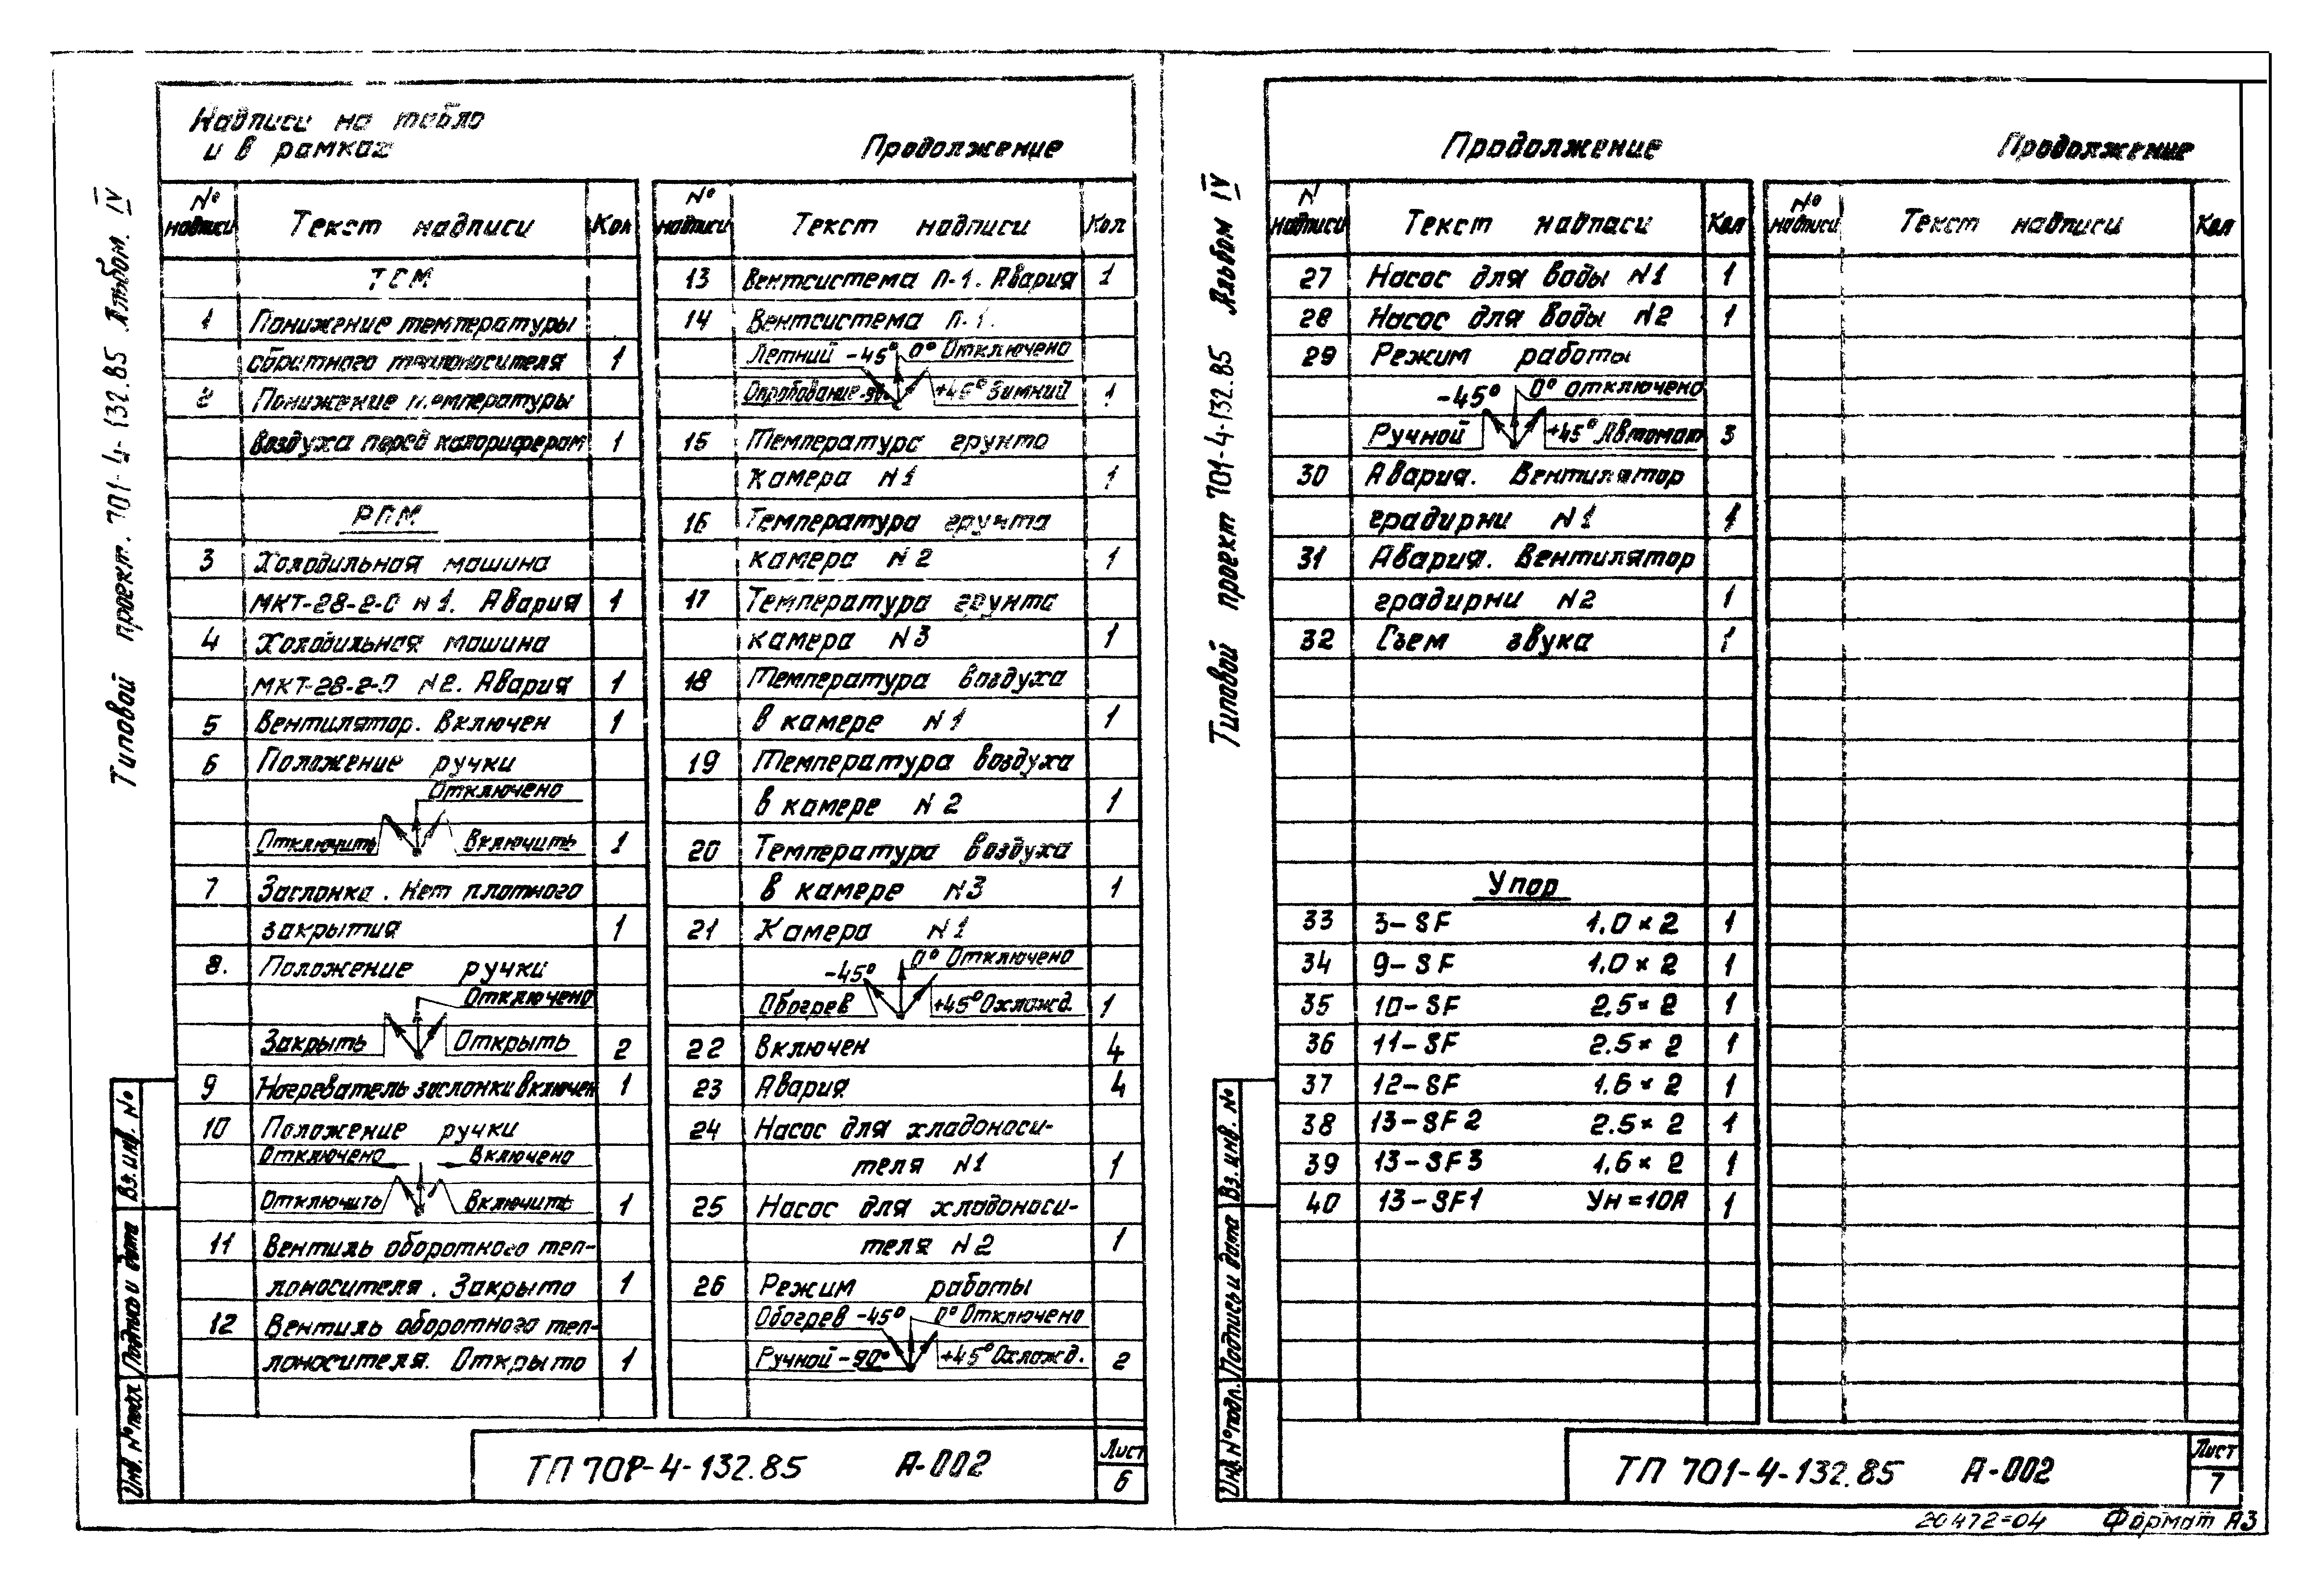 Типовой проект. 701-4-132.85 Альбом. IV
Надписи на табло
и в рамках
Продолжение
№ надписи Текст надписи Кол
ТСМ
1 Понижение температуры
обратного теплоносителя 1
2 Понижение температуры
воздуха перед калорифером 1
РПМ
3 Холодильная машина
МКТ-28-2-0 N1. Авария 1
4 Холодильная машина
МКТ-28-2-0 N2. Авария 1
5 Вентилятор. Включен 1
6 Положение ручки
Отключено
Отключить Включить 1
7 Заслонка. Нет плотного
закрытия 1
8. Положение ручки
Отключено
Закрыть Открыть 2
9 Нагреватель заслонки включен 1
10 Положение ручки
Отключено Включено
Отключить Включить 1
11 Вентиль оборотного теп-
лоносителя. Закрыто 1
12 Вентиль оборотного теп-
лоносителя. Открыто 1
№ надписи Текст надписи Кол
13 Вентсистема П-1. Авария 1
14 Вентсистема П-1.
Летний -45° 0° Отключено
Опробование -90° +45° Зимний 1
15 Температура грунта
камера N1 1
16 Температура грунта
камера N2 1
17 Температура грунта
камера N3 1
18 Температура воздуха
в камере N1 1
19 Температура воздуха
в камере N2 1
20 Температура воздуха
в камере N3 1
21 Камера N1
-45° 0° Отключено
Обогрев +45° Охлажд. 1
22 Включен 4
23 Авария 4
24 Насос для хладоноси-
теля N1 1
25 Насос для хладоноси-
теля N2 1
26 Режим работы
Обогрев -45° 0° Отключено
Ручной -90° +45° Охлажд. 2
Инв. № подл. Подпись и дата Вз. инв. №
ТП 70Р-4-132.85 А-002
Лист
6
Типовой проект 701-4-132.85 Альбом IV
Продолжение
N надписи Текст надписи Кол
27 Насос для воды N1 1
28 Насос для воды N2 1
29 Режим работы
-45° 0° Отключено
Ручной +45° Автомат 3
30 Авария. Вентилятор
градирни N1 1
31 Авария. Вентилятор
градирни N2 1
32 Съем звука 1
Упор
33 3-SF 1,0×2 1
34 9-SF 1,0×2 1
35 10-SF 2,5×2 1
36 11-SF 2.5×2 1
37 12-SF 1.6×2 1
38 13-SF2 2.5×2 1
39 13-SF3 1,6×2 1
40 13-SF1 Ун=10А 1
Продолжение
№ надписи Текст надписи Кол
Инв. № подл. Подпись и дата Вз. инв. №
ТП 701-4-132.85 А-002
Лист
7
20472=04 Формат А3